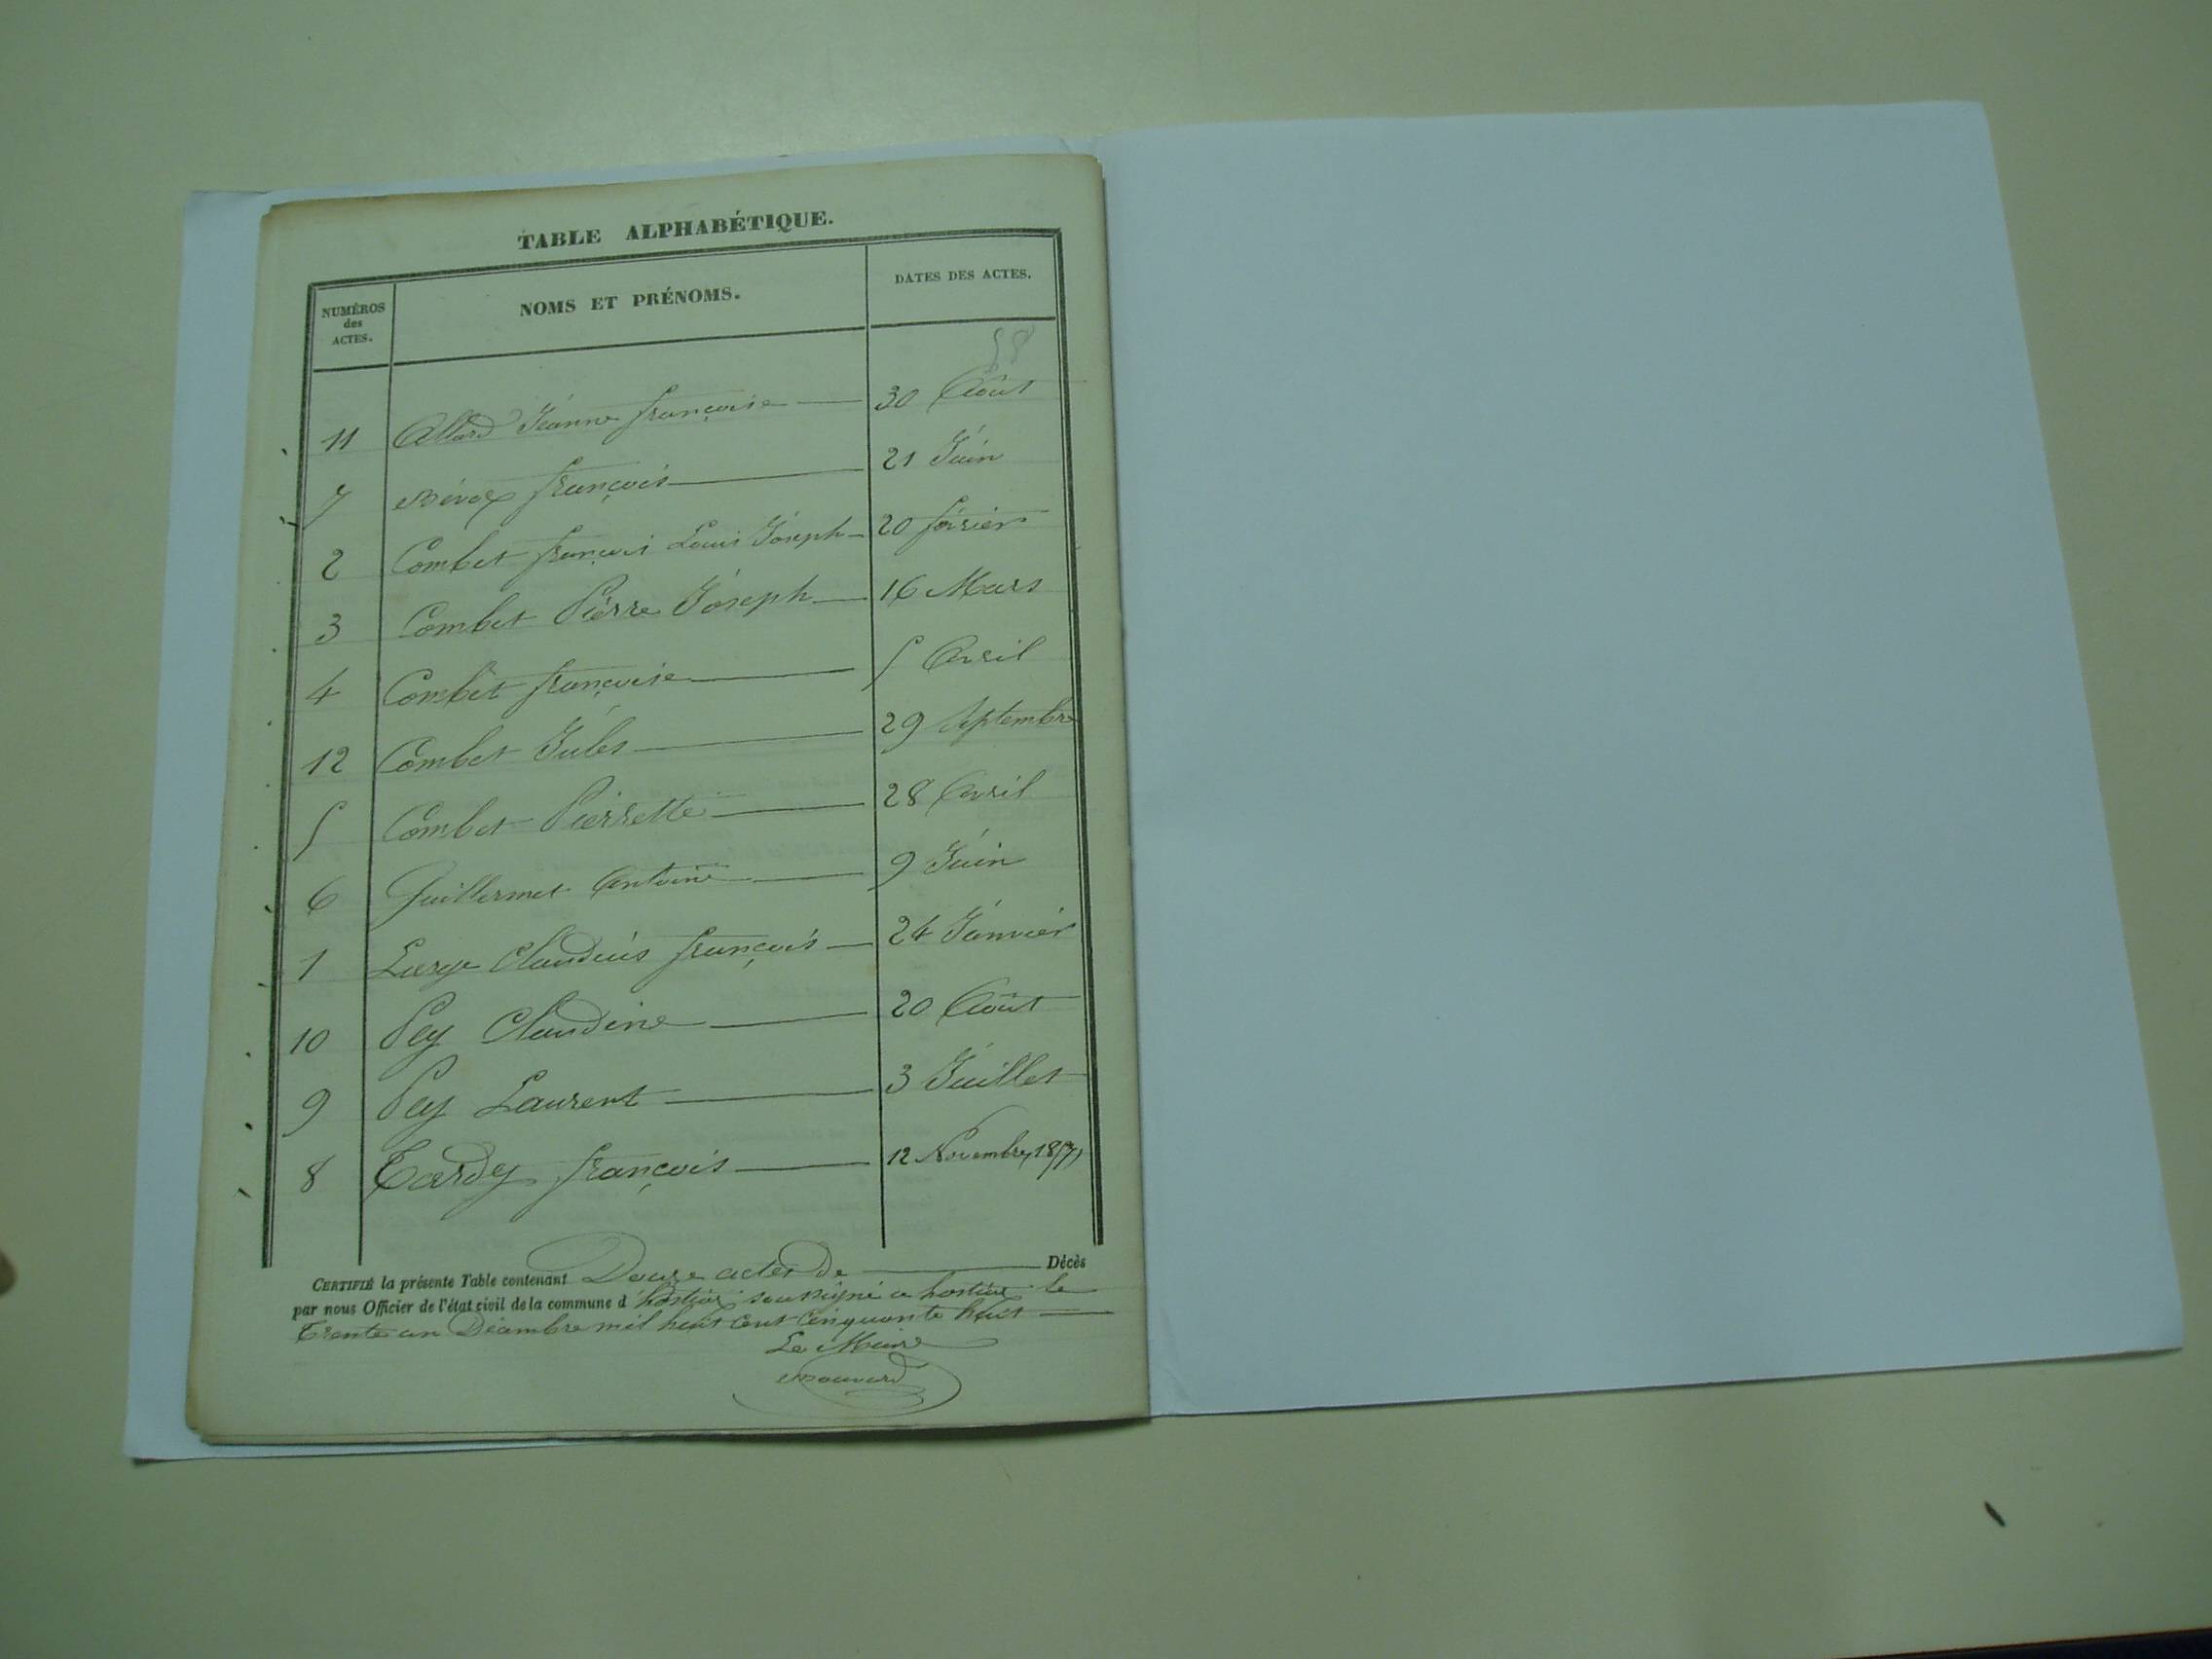 TABLE ALPHABÉTIQUE.
NUMÉROS des ACTES. NOMS ET PRÉNOMS. DATES DES ACTES.
58
11 Allard Jeanne françoise 30 Août
7 françois 21 Juin
2 Combet françois Louis Joseph 20 févrièr
3 Combet Pièrre Joseph 16 Mars
4 Combet françoise 5 Avril
12 Combet Jules 29 Septembre
5 Combet Pièrrette 28 Avril
6 Guillermet Antoine 9 Juin
1 Large Claudius françois 24 Janvièr
10 Pey Claudine 20 Août
9 Pey Laurent 3 Juillet
8 Tardy françois 12 Novembre 1857
CERTIFIÉ la présente Table contenant Douze actes de Décès
par nous Officier de l'état civil de la commune d'hostiaz soussigné a hostiaz le
Trente un Décembre mil huit cent cinquante huit
Le Maire